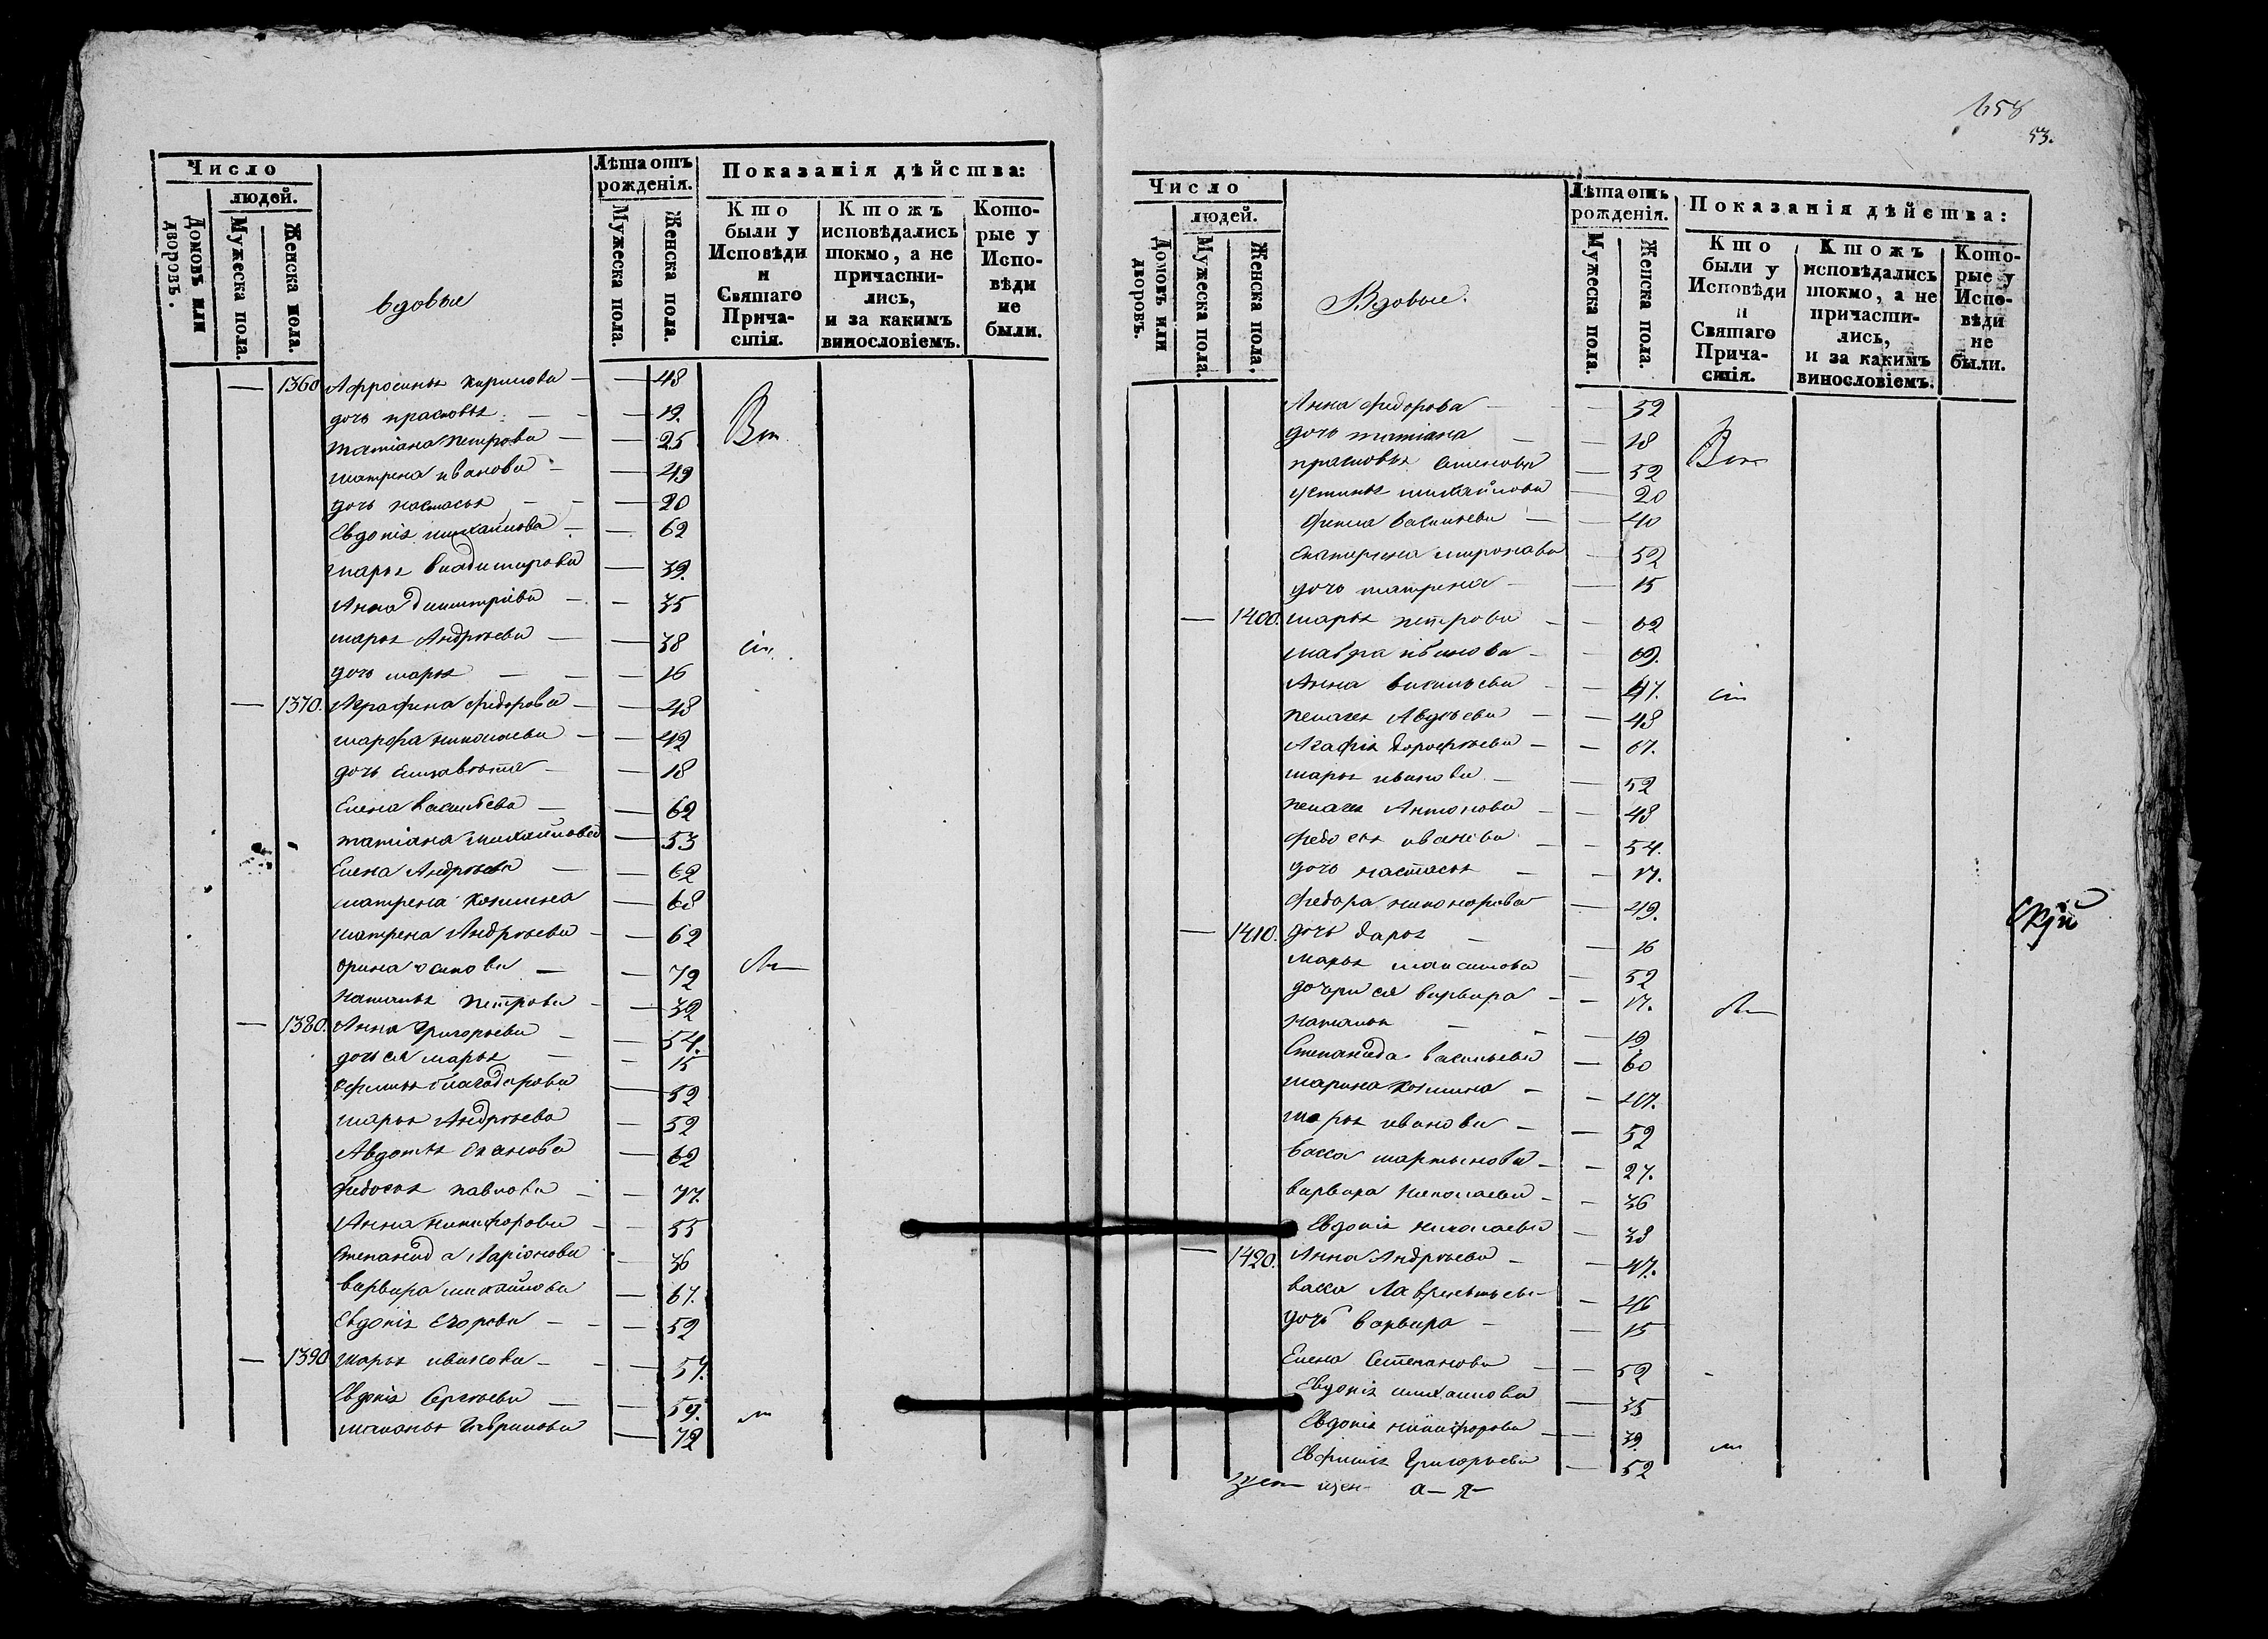 658
53.
Число
людей.
Домовъ или дворовъ.
Мужеска пола.
Женска пола.
вдовые
Лѣта отъ рожденія.
Мужеска пола.
Женска пола.
Показанія дѣйства:
Кто были у Исповѣди и Святаго Причастія.
Ктожъ исповѣдались токмо, а не причастились, и за какимъ винословіемъ.
Которые у Исповѣди не были.
— 1360 Афросинья Кирилова — — 48
дочь прасковья — — 19.
татіана петрова — — 25 Вси
матрена иванова — — 49
дочь настасья — — 20
Евдокія михайлова — — 62
марья владимирова — 39.
Анна димитріева — — 35
марья Андрѣева — — 38
дочь марья — — 16
— 1370. Аграфена федорова — — 48
марфа николаева — — 42
дочь елизавѣта — — 18
Елена васильева — — 62
татіана михайлова — 53
Елена Андрѣева — — 62
матрена — 68
матрена Андрѣева — — 62
орина осипова — — 72
наталья петрова — — 32
— 1380. Анна Григорьева — — 54.
дочь ея марья — — 15
— 52
марья Андрѣева — 52
Авдотья — 62
федосья павлова — — 77.
Анна никифорова — — 55
Степанида Ларіонова — 36
варвара михайлова — 67.
Евдокія егорова — — 52
— 1390 марья иванова — — 57.
Евдокія Сергѣева — — 59.
меланья Гаврилова — 72
Число
людей.
Домовъ или дворовъ.
Мужеска пола.
Женска пола.
Вдовые.
Лѣта отъ рожденія.
Мужеска пола.
Женска пола.
Показанія дѣйства:
Кто были у Исповѣди и Святаго Причастія.
Ктожъ исповѣдались токмо, а не причастились, и за какимъ винословіемъ.
Которые у Исповѣди не были.
Анна федорова — — 52
дочь татіана — — 18
прасковья — 52 Вси
устинья михайлова — 20
васильева — — 40
екатерина миронова — 52
дочь матрена — — 15
— 1400. марья петрова — — 62
мавра иванова — — 69.
Анна васильева — — 47.
пелагея Авдѣева — — 48
Агафія дорофѣева — — 67.
марья иванова — — 52
пелагея Антонова — — 48
федосья иванова — — 54.
дочь настасья — — 17.
федора никонорова — 49.
— 1410. дочь дарья — — 16
марья максимова — 52
дочери ея варвара — — 17.
наталья — — 19.
Степанида васильева — 60
марина — — 47.
марья иванова — — 52
васса мартынова — — 27.
варвара николаева — — 36
Евдокія николаева — 38
— 1420. Анна Андрѣева — — 47.
васса Лаврентьева — 46
дочь варвара — — 15
Елена Степанова — — 52
Евдокія михайлова — 35
Евдокія никифорова — 39.
Евфимія Григорьева — 52